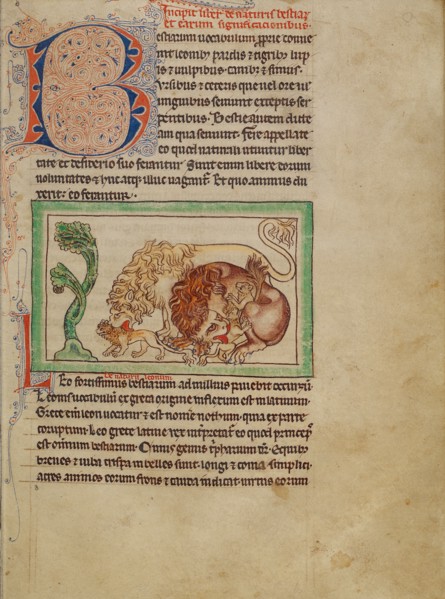 Incipit liber de naturis bestiarum
et earum significationibus.
Bestiarum vocabulum proprie conue
nit leonibus pardis et tigribus lup
is et uulpibus canibus et simiis.
Ursibus et ceteris que uel ore uel
unguibus seuiunt exceptis ser
pentibus. Bestie autem dicte
a ui qua seuiunt. Fere appellate
eo quod naturali utuntur liber
tate et desiderio suo ferantur. Sunt enim libere eorum
uoluntates et huc atque illuc uagantur. Et quo animus du
xerit: eo feruntur.
De natura leonum
Leo fortissimus bestiarum ad nullius pauebit occursum.
Leonis uocabulum ex greca origine inflexum est in latinum.
Grece enim leon uocatur et est nomen nothum. quia ex parte
corruptum. Leo grece latine rex interpretatur eo quod princeps
est omnium bestiarum. Cuius genus tripharium dicitur. E quibus
breues et iuba crispa inbelles sunt. longi et coma simplici
acres animos eorum frons et cauda indicat. uirtus eorum